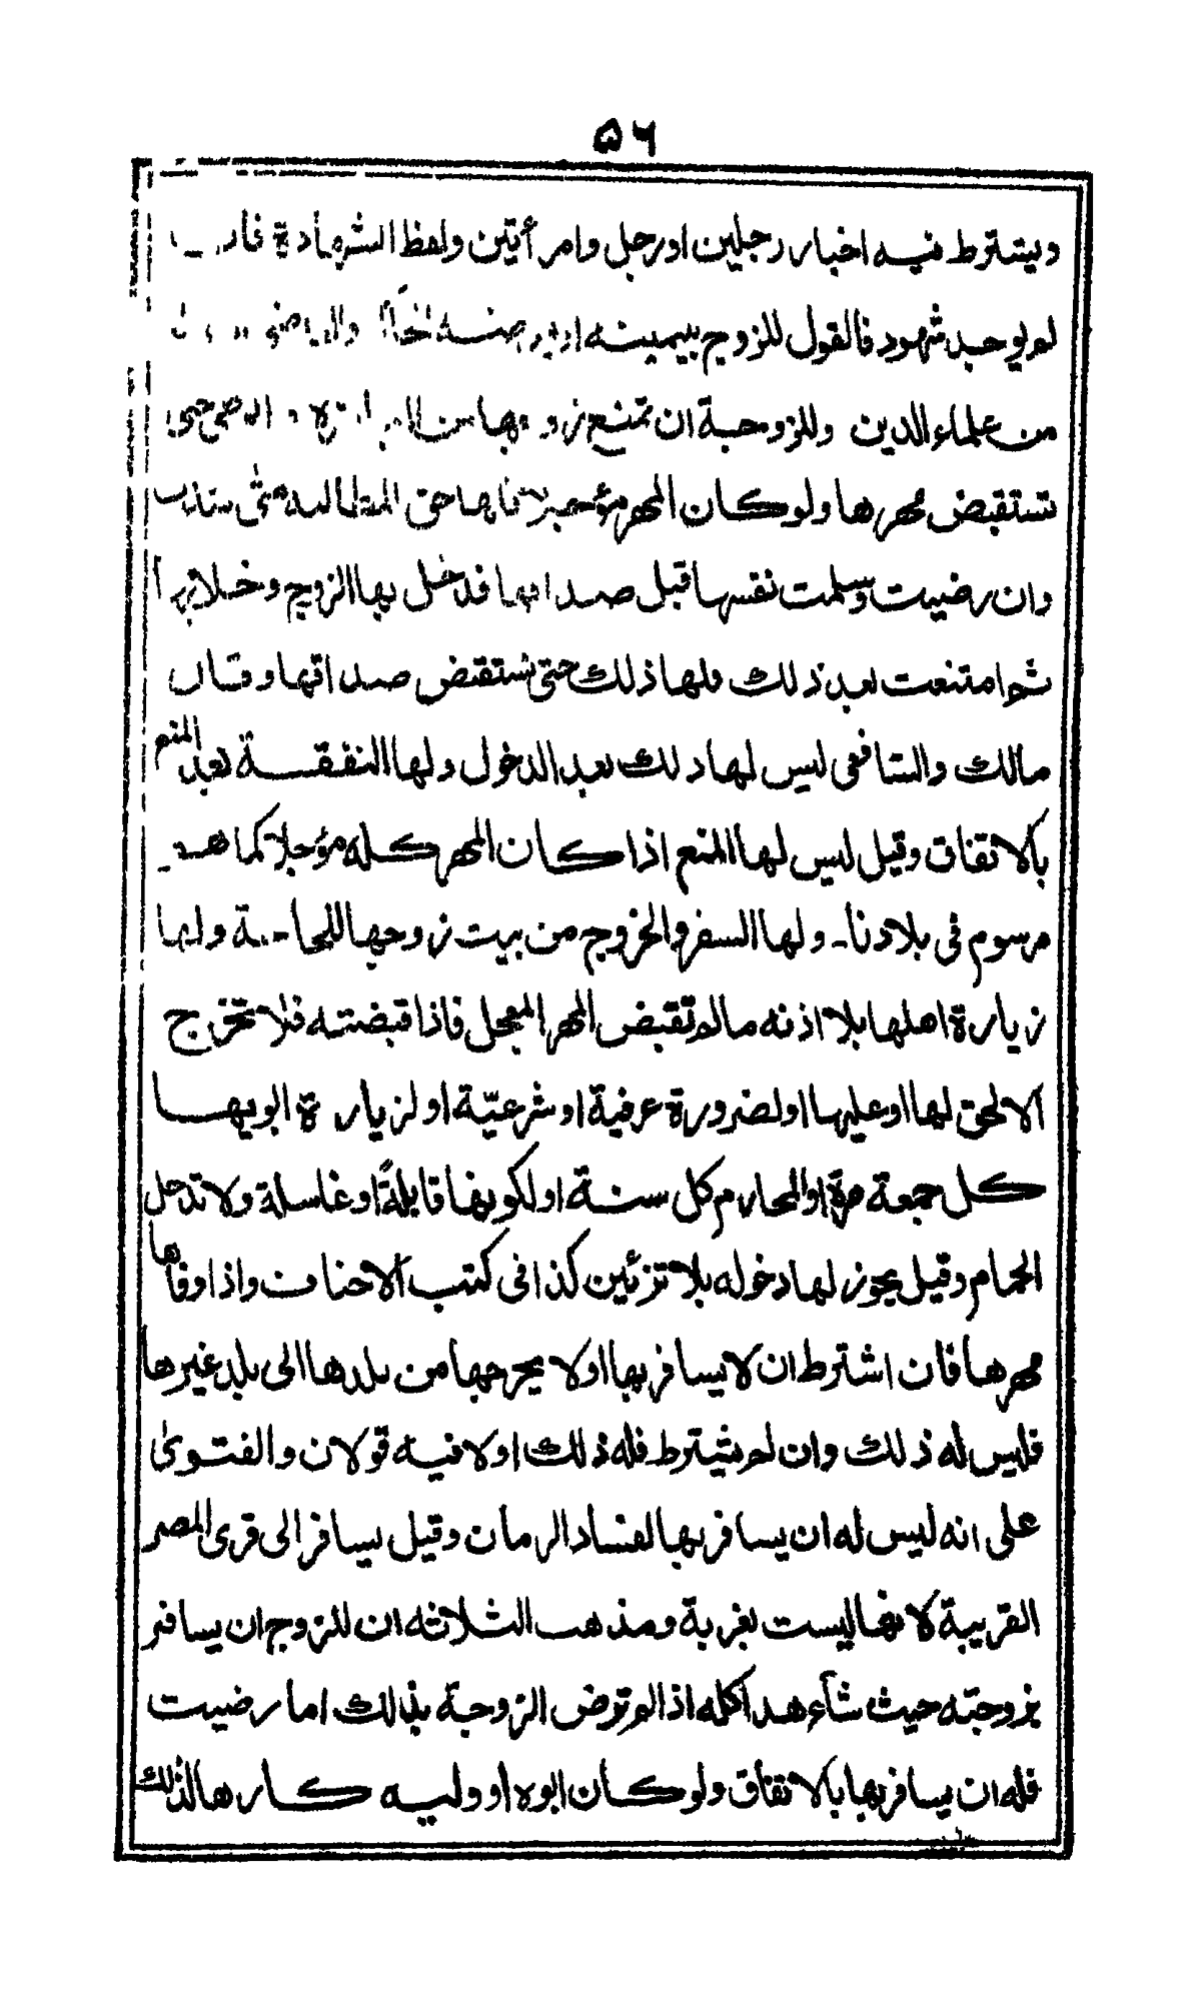 ۵۶
ويشترط فيه اخبار رجلين او رجل وامرأتين ولفظ الشهادة فان
لم يوجد شهود فالقول للزوج بيمينه
من علماء الدين وللزوجة ان تمنع زوجها من حتى
تستقبض مهرها ولو كان المهر مؤجلا فلها حق المطالبة متى
وان رضيت وسلمت نفسها قبل صداقها فدخل بها الزوج وخلا بها
ثم امتنعت بعد ذلك فلها ذلك حتى تستقبض صداقها وقال
مالك والشافعى ليس لها ذلك بعد الدخول ولها النفقة بعد المنع
بالاتفاق وقيل ليس لها المنع اذا كان المهر كله مؤجلا كما هو
مرسوم فى بلادنا۔ ولها السفر والخروج من بيت زوجها للحاجة ولها
زيارة اهلها بلا اذنه مالم تقبض المهر المعجل فاذا قبضته فلا تخرج
الا لحق لها او عليها او لضرورة عرفية او شرعيّة او لزيارة ابويها
كل جمعة مرة او المحارم كل سنة او لكونها قابلةً او غاسلة ولا تدخل
الحمام وقيل يجوز لها دخوله بلا تزئين كذا فى كتب الاحناف واذا وفاها
مهرها فان اشترط ان لا يسافر بها او لا يخرجها من بلدها الى بلد غيرها
فليس له ذلك وان لم يشترط فله ذلك او لا فيه قولان والفتوىٰ
على انه ليس له ان يسافر بها لفساد الزمان وقيل يسافر الى قرى المصر
القريبة لانها ليست بغربة ومذهب الثلاثه ان للزوج ان يسافر
بزوجته حيث شاء هذا كله اذا لم ترض الزوجة بذالك اما رضيت
فله ان يسافر بها بالاتفاق ولو كان ابوه او وليه كارها لذلك